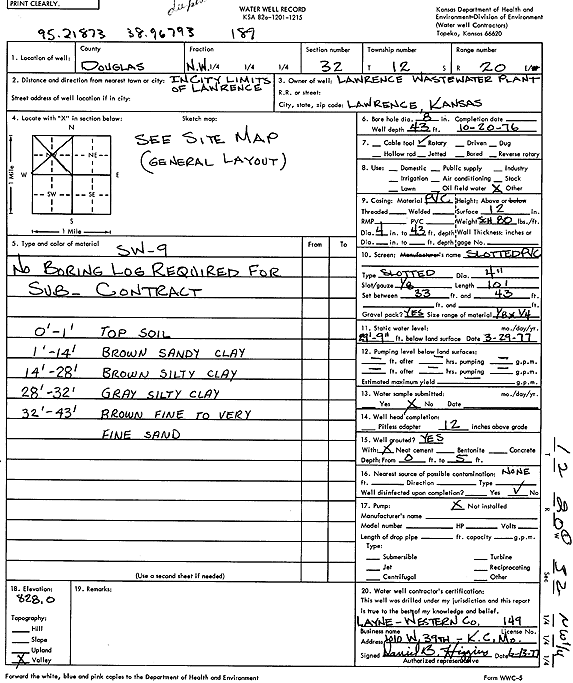 PRINT CLEARLY.
WATER WELL RECORD
KSA 82a-1201-1215
Kansas Department of Health and
Environment-Division of Environment
(Water well Contractors)
Topeka, Kansas 66620
95.21873 38.96793 189
1. Location of well:
County
DOUGLAS
Fraction
N.W. 1/4 1/4 1/4
Section number
32
Township number
T 12 S
Range number
R 20
2. Distance and direction from nearest town or city: IN CITY LIMITS
OF LAWRENCE
Street address of well location if in city:
3. Owner of well: LAWRENCE WASTEWATER PLANT
R.R. or street:
City, state, zip code: LAWRENCE, KANSAS
4. Locate with "X" in section below:
Sketch map:
N
NE
W
E
SW
SE
S
1 Mile
1 Mile
SEE SITE MAP
(GENERAL LAYOUT)
6. Bore hole dia. 8 in. Completion date
Well depth 43 ft. 10-20-76
7. Cable tool Rotary Driven Dug
Hollow rod Jetted Bored Reverse rotary
8. Use: Domestic Public supply Industry
Irrigation Air conditioning Stock
Lawn Oil field water X Other
9. Casing: Material PVC Height: Above or below
Threaded Welded Surface 12 in.
RMP PVC Weight SCH 80 lbs./ft.
Dia. 4 in. to 43 ft. depth Wall Thickness: inches or
Dia. in. to ft. depth gage No.
10. Screen: Manufacturer's name SLOTTED PVC
Type SLOTTED Dia. 4"
Slot/gauze 1/8 Length 10'
Set between 33 ft. and 43 ft.
ft. and ft.
Gravel pack? YES Size range of material 1/8 x 1/4
11. Static water level: mo./day/yr.
ft. below land surface Date 3-29-77
12. Pumping level below land surfaces:
ft. after hrs. pumping g.p.m.
ft. after hrs. pumping g.p.m.
Estimated maximum yield g.p.m.
13. Water sample submitted: mo./day/yr.
Yes X No Date
14. Well head completion:
Pitless adapter 12 inches above grade
15. Well grouted? YES
With: X Neat cement Bentonite Concrete
Depth: From 0 ft. to 5 ft.
16. Nearest source of possible contamination: NONE
ft. Direction Type
Well disinfected upon completion? Yes ✓ No
17. Pump: X Not installed
Manufacturer's name
Model number HP Volts
Length of drop pipe ft. capacity g.p.m.
Type:
Submersible Turbine
Jet Reciprocating
Centrifugal Other
5. Type and color of material
From To
SW-9
NO BORING LOG REQUIRED FOR
SUB-CONTRACT
0'-1' TOP SOIL
1'-14' BROWN SANDY CLAY
14'-28' BROWN SILTY CLAY
28'-32' GRAY SILTY CLAY
32'-43' BROWN FINE TO VERY
FINE SAND
(Use a second sheet if needed)
18. Elevation:
828.0
Topography:
Hill
Slope
Upland
X Valley
19. Remarks:
20. Water well contractor's certification:
This well was drilled under my jurisdiction and this report
is true to the best of my knowledge and belief.
LAYNE-WESTERN CO. 149
Business name License No.
Address 1010 W. 39TH - K.C., MO.
Signed Daniel B. Higgins Date 6-13-77
Authorized representative
Forward the white, blue and pink copies to the Department of Health and Environment
Form WWC-5
T 12
R 20 E
Sec 32
NW 1/4 1/4 1/4